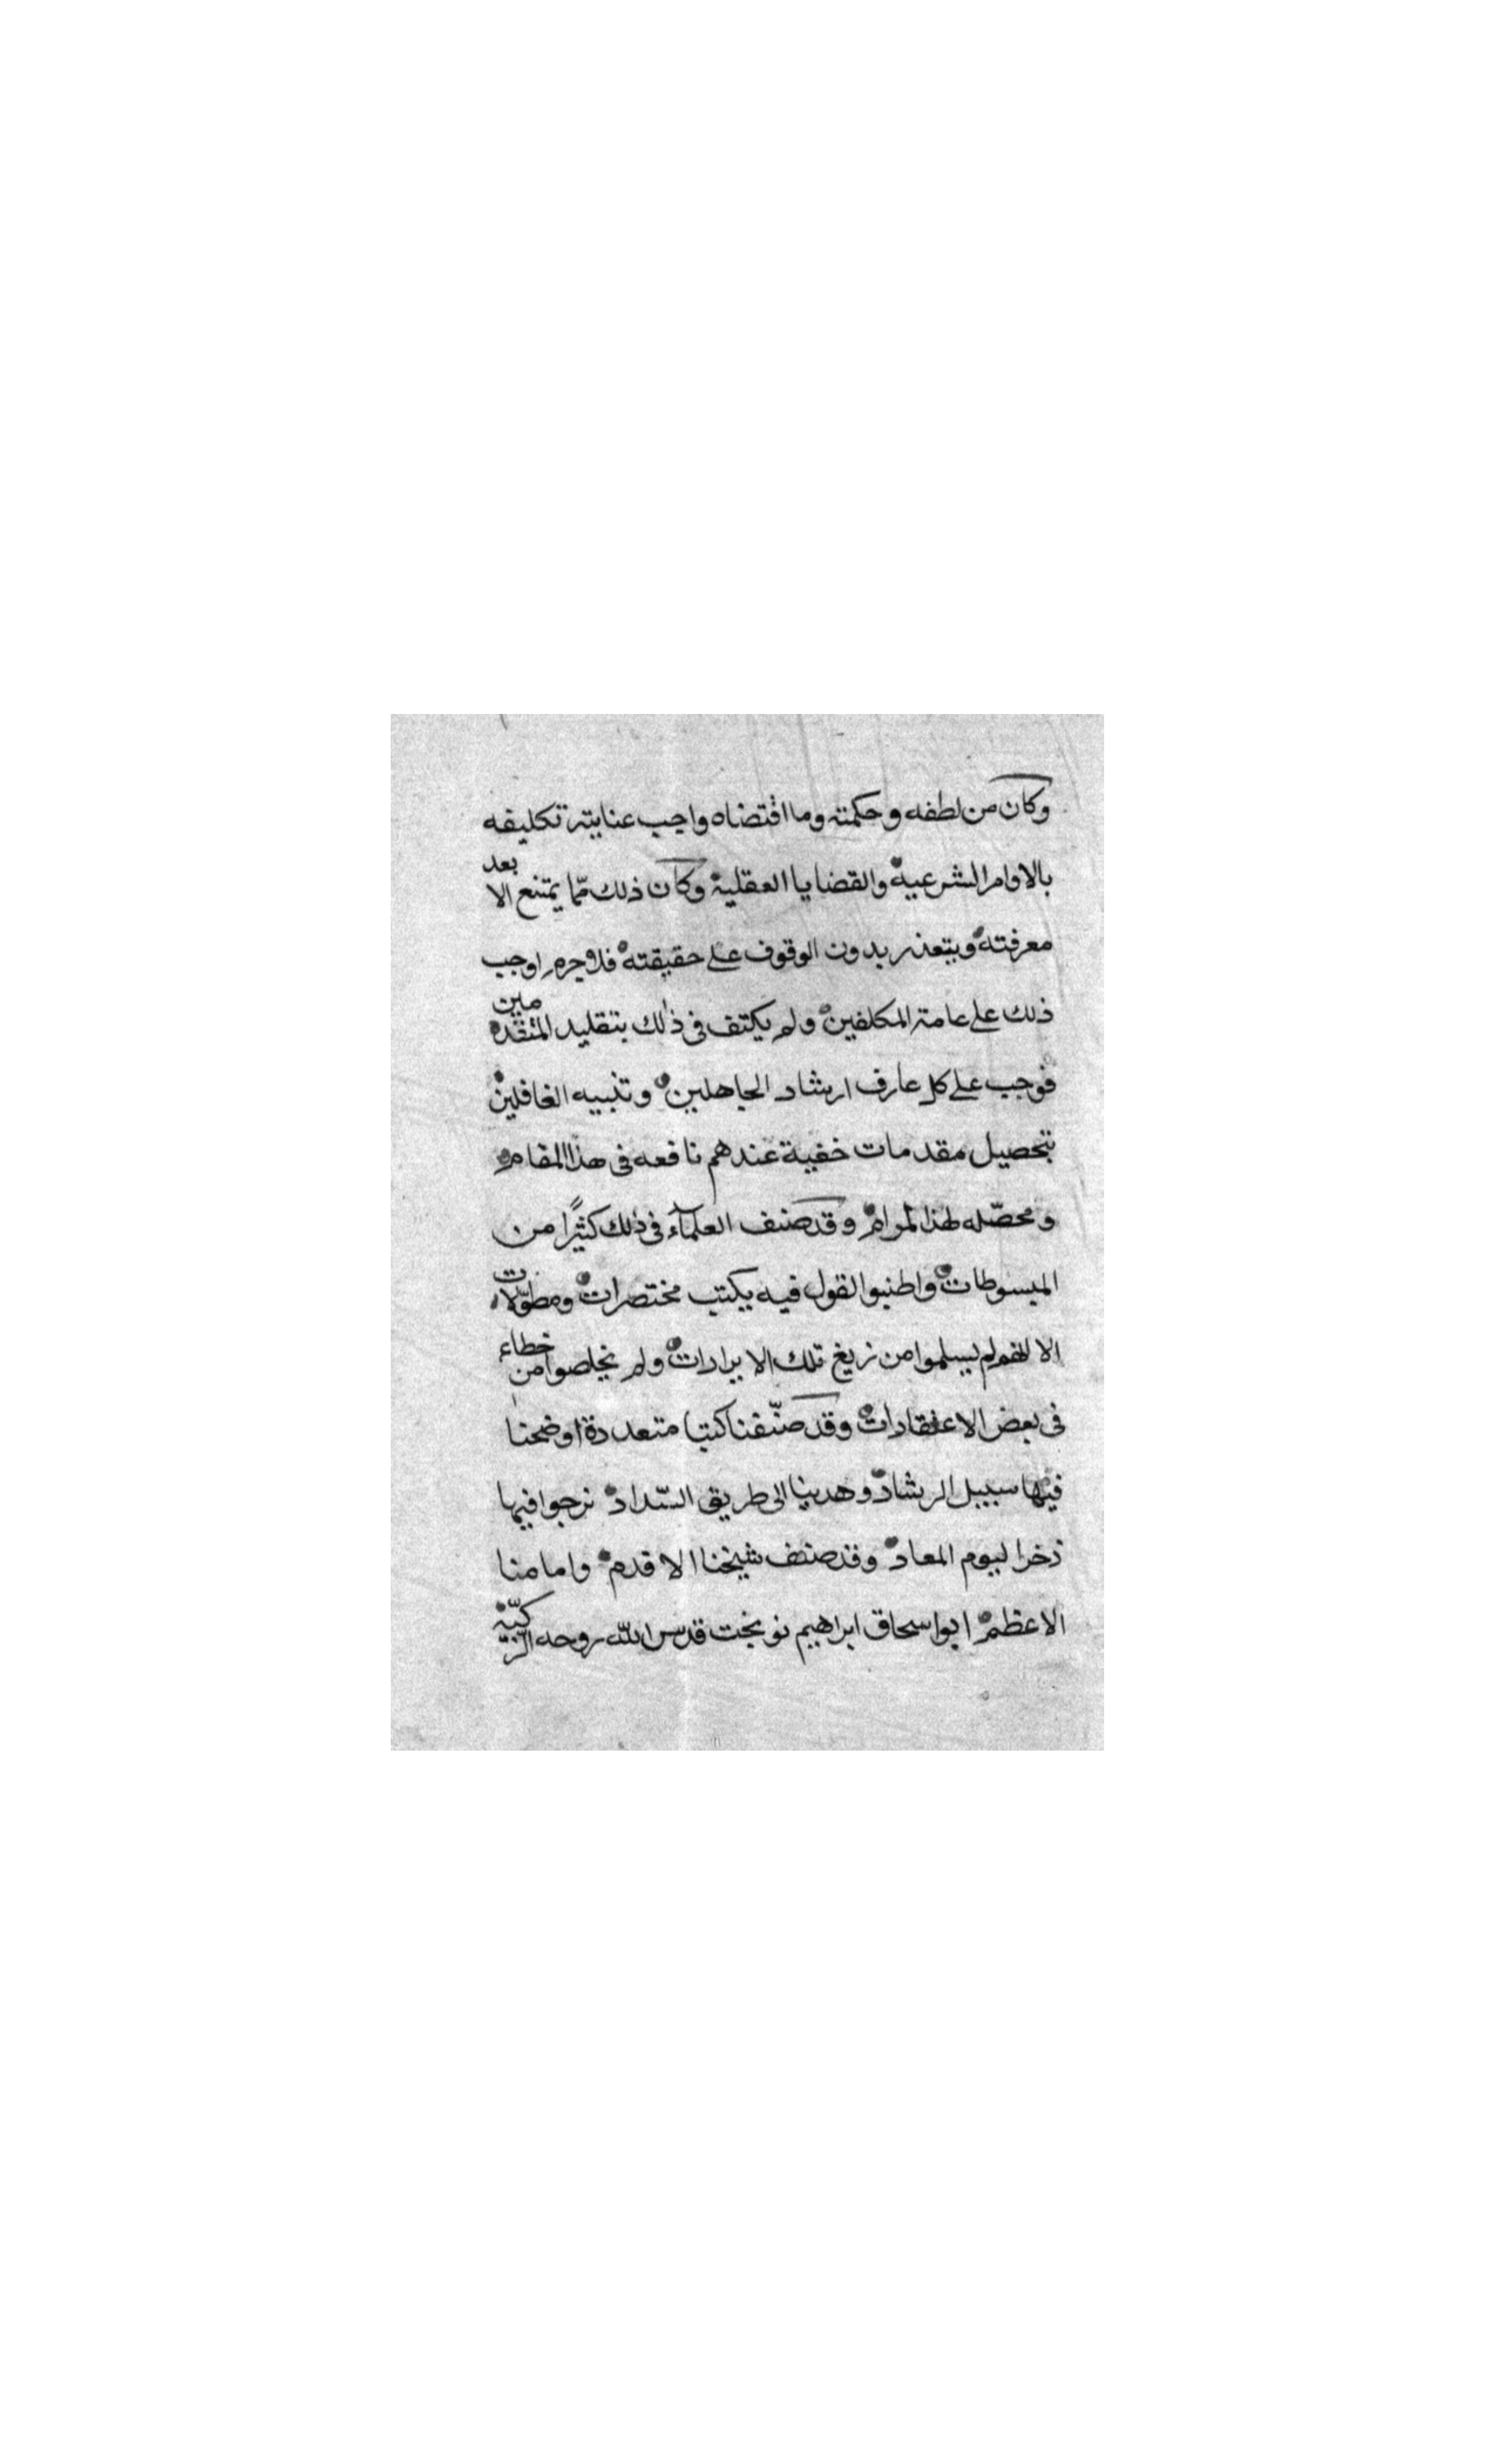 وكان من لطفه وحكمته وما اقتضاه واجب عنايته تكليفه
بالاوامر الشرعية والقضايا العقلية وكان ذلك ممّا يمتنع الا بعد
معرفته ويتعذر بدون الوقوف على حقيقته فلا جرم اوجب
ذلك على عامة المكلفين ولم يكتف فى ذلك بتقليد المتقدمين
فوجب على كل عارف ارشاد الجاهلين وتنبيه الغافلين
بتحصيل مقدمات خفية عندهم نافعه فى هذا المقام
ومحصّله لهذا المرام وقد صنف العلماء فى ذلك كثيرًا من
المبسوطات واطنبوا القول فيه بكتب مختصرات ومطوّلات
الا انهم لم يسلموا من زيغ تلك الايرادات ولم يخلصوا من خطاء
فى بعض الاعتقادات وقد صنّفنا كتبا متعددة اوضحنا
فيها سبيل الرشاد وهدينا الى طريق السّداد نرجوا فيها
ذخرا ليوم المعاد وقد صنف شيخنا الاقدم وامامنا
الاعظم ابواسحاق ابراهيم نوبخت قدس الله روحه الزكيّة